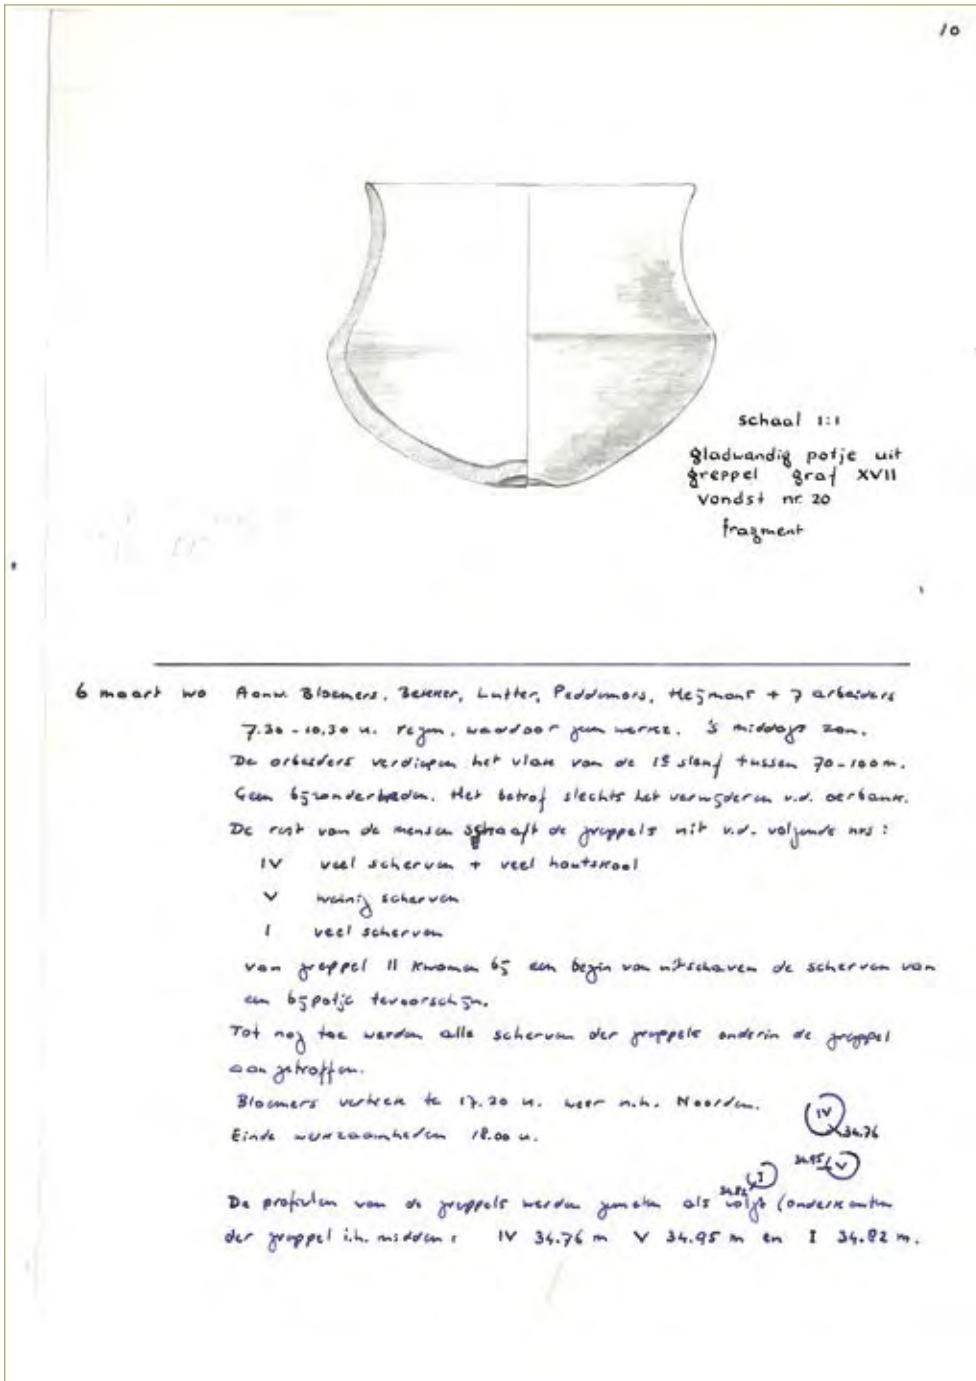 10
schaal 1:1
gladwandig potje uit
greppel graf XVII
vondst nr. 20
fragment
6 maart wo Aanw. Bloemers, Bekker, Lutter, Peddemors, Heijmans + 7 arbeiders
7.30 - 10.30 u. regen, waardoor geen werk. 's middags zon.
De arbeiders verdiepen het vlak van de 1e sleuf tussen 70-100 m.
Geen bijzonderheden. Het betrof slechts het verwijderen v.d. oerbank.
De rest van de mensen schaaft de greppels uit v.d. volgende nrs :
IV veel scherven + veel houtskool
V weinig scherven
I veel scherven
van greppel II kwamen bij een begin van uitschaven de scherven van
een bijpotje tevoorschijn.
Tot nog toe werden alle scherven der greppels onderin de greppel
aangetroffen.
Bloemers vertrek te 17.20 u. weer n.h. Noorden.
IV
34.76
Einde werkzaamheden 18.00 u.
34.95 V
I
34.82
De profielen van de greppels werden gemeten als volgt (onderkanten
der greppel i.h. midden : IV 34.76 m V 34.95 m en I 34.82 m.